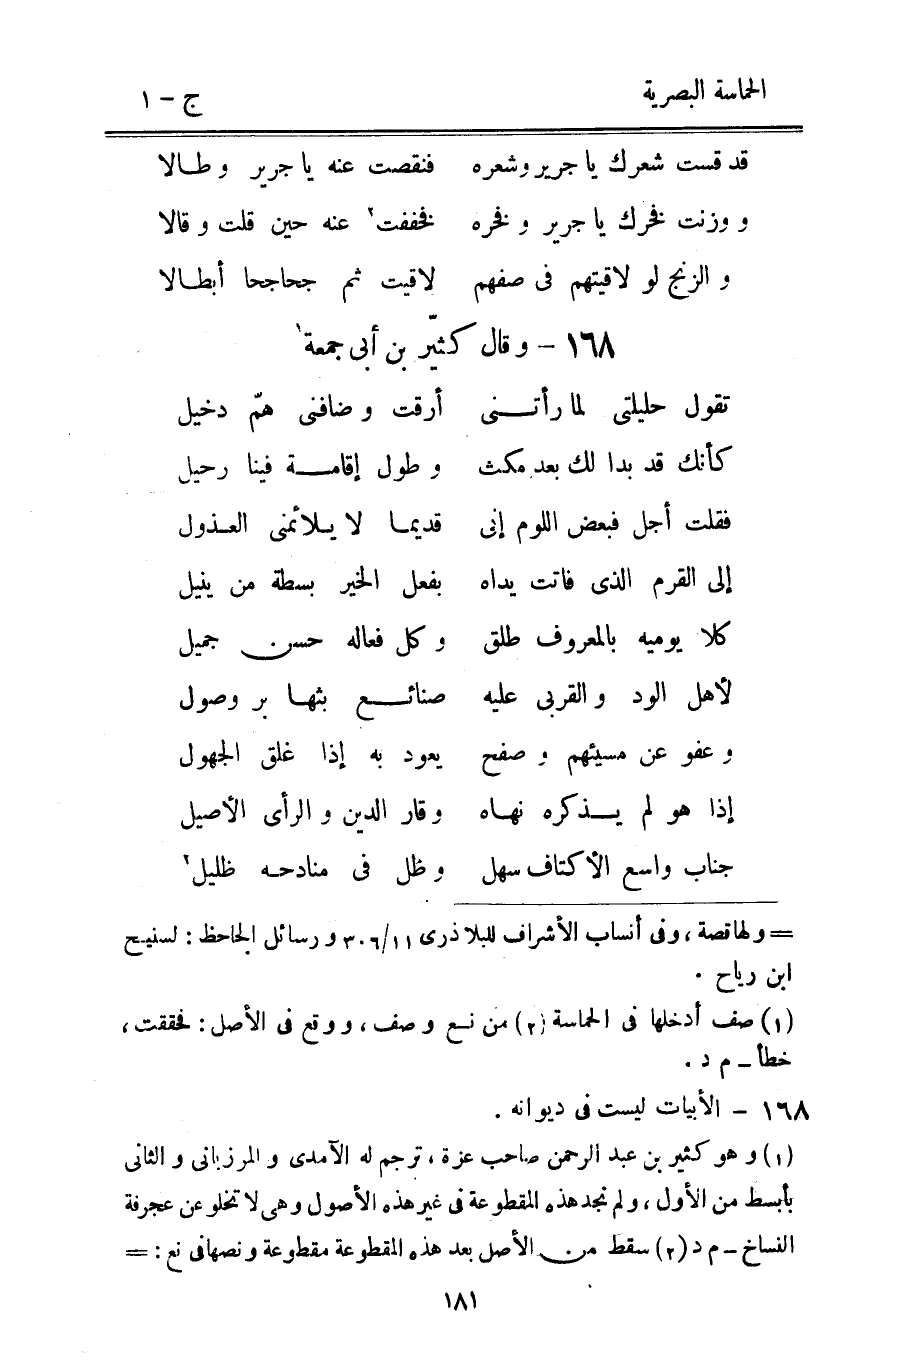 الحماسة البصرية ج – ١
قد قست شعرك يا جرير وشعره فنقصت عنه يا جرير و طـالا
و وزنت فخرك يا جرير و فخره فخففت٢ عنه حين قلت و قالا
و الزنج لو لاقيتهم فى صفهم لاقيت ثم جحاجحا أبطـالا
١٦٨ – و قال كثيّر بن أبى جمعة١
تقول حليلتى لما رأتـــنى أرقت و ضافنى همّ دخيل
كأنك قد بدا لك بعد مكث و طول إقامـــة فينا رحيل
فقلت أجل فبعض اللوم إنى قديمـا لا يـلائمنى العـذول
إلى القرم الذى فاتت يداه بفعل الخير بسطة من ينيل
كلا يوميه بالمعروف طلق و كل فعاله حسن جميل
لأهل الود و القربى عليه صنائـــع بثهـا بر وصول
و عفو عن مسيئهم و صفح يعود به إذا غلق الجهول
إذا هو لم يـــذكره نهـاه وقار الدين و الرأى الأصيل
جناب واسع الأكتاف سهل و ظل فى منادحـه ظليل٢
= ولها قصة ، وفى أنساب الأشراف للبلاذرى ٣٠٦/١١ و رسائل الجاحظ : لسنيح
ابن رياح .
(١) صف أدخلها فى الحماسة (٢) من نـع و صف ، و وقع فى الأصل : فحققت ،
خطأ – م د .
١٦٨ – الأبيات ليست فى ديوانه .
(١) و هو كثير بن عبد الرحمن صاحب عزة ، ترجم له الآمدى و المرزبانى و الثانى
بأبسط من الأول ، ولم نجد هذه المقطوعة فى غير هذه الأصول وهى لا تخلو عن عجرفة
النساخ – م د (٢) سقط من الأصل بعد هذه المقطوعة مقطوعة ونصها فى نع : =
١٨١